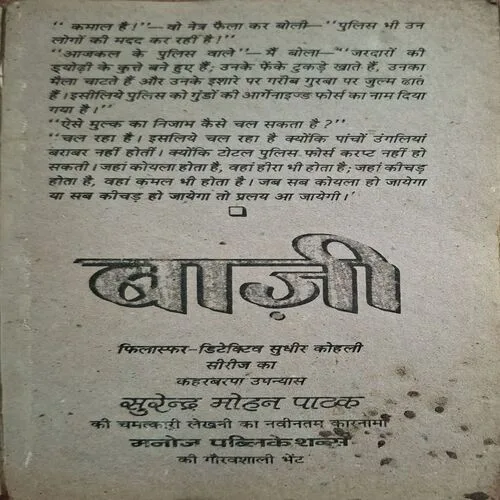 " कमाल है!"—वो नेत्र फैला कर बोली—"पुलिस भी उन
लोगों की मदद कर रही है!"
"आजकल के पुलिस वाले"—मैं बोला—"जरदारों की
ड्योढ़ी के कुत्ते बने हुए हैं; उनके फेंके टुकड़े खाते हैं, उनका
मैला चाटते हैं और उनके इशारे पर गरीब गुरबा पर जुल्म ढाते
हैं। इसीलिये पुलिस को गुंडों की आर्गेनाइज्ड फोर्स का नाम दिया
गया है।"
"ऐसे मुल्क का निजाम कैसे चल सकता है?"
"चल रहा है। इसलिये चल रहा है क्योंकि पांचों उंगलियां
बराबर नहीं होतीं। क्योंकि टोटल पुलिस फोर्स करप्ट नहीं हो
सकती। जहां कोयला होता है, वहां हीरा भी होता है; जहां कीचड़
होता है, वहां कमल भी होता है। जब सब कोयला हो जायेगा
या सब कीचड़ हो जायेगा तो प्रलय आ जायेगी।'
बाज़ी
फिलास्फर-डिटेक्टिव सुधीर कोहली
सीरीज का
कहरबरपा उपन्यास
सुरेन्द्र मोहन पाठक
की चमत्कारी लेखनी का नवीनतम कारनामा
मनोज पब्लिकेशन्स
की गौरवशाली भेंट